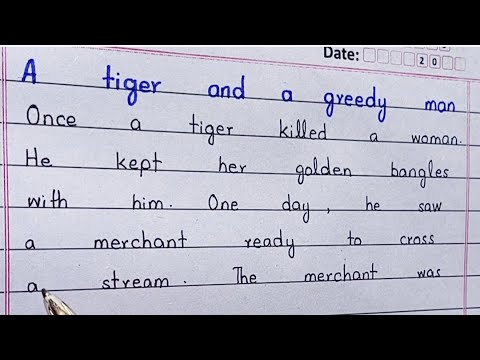 Date: 20
A tiger and a greedy man
Once a tiger killed a woman.
He kept her golden bangles
with him. One day, he saw
a merchant ready to cross
a stream. The merchant was